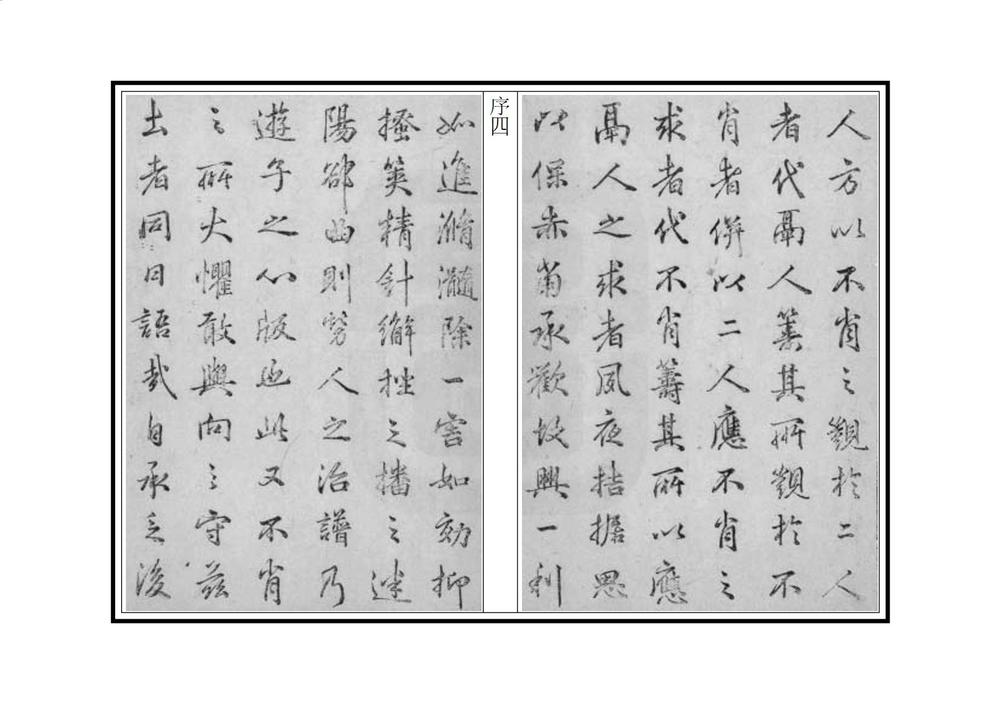 人方以不肖之觀於二人
者代鬲人籌其所觀於不
肖者併以二人應不肖之
求者代不肖籌其所以應
鬲人之求者夙夜拮据思
以保赤甾承歡坟興一利
序四
如進滫瀡除一害如劾抑
搔筴精針繲挫之播之迷
陽郤曲則努人之治譜乃
遊子之心版也此又不肖
之所大懼敢與向之守茲
土者同日語哉自承乏浚